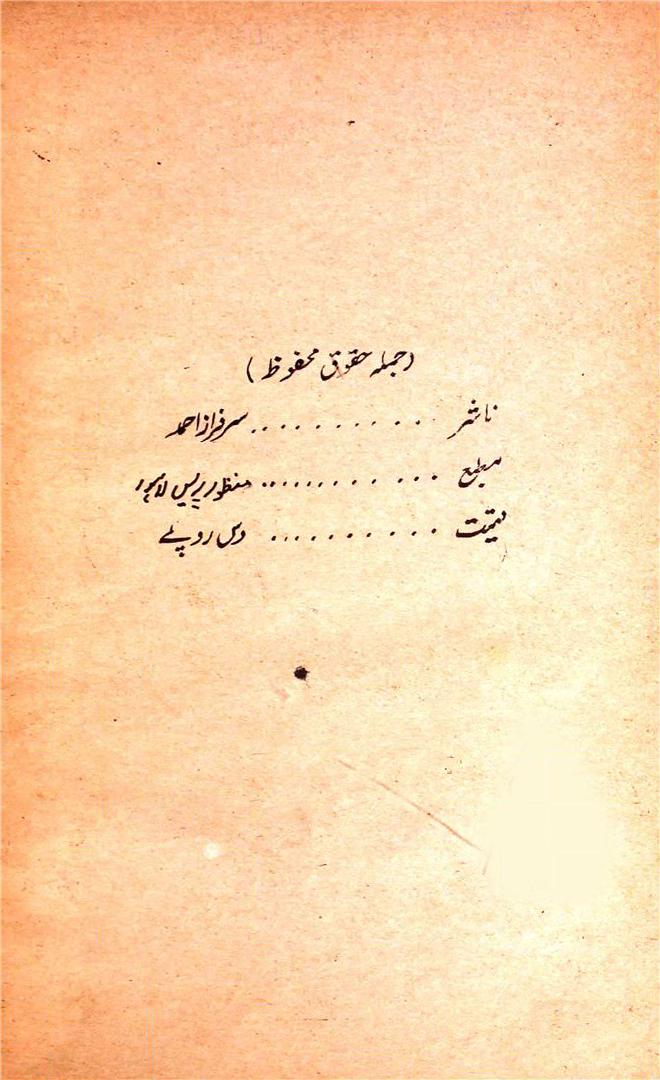 (جملہ حقوق محفوظ)
ناشر ............ سرفراز احمد
مطبع ............ منظور پریس لاہور
قیمت ............ دس روپے